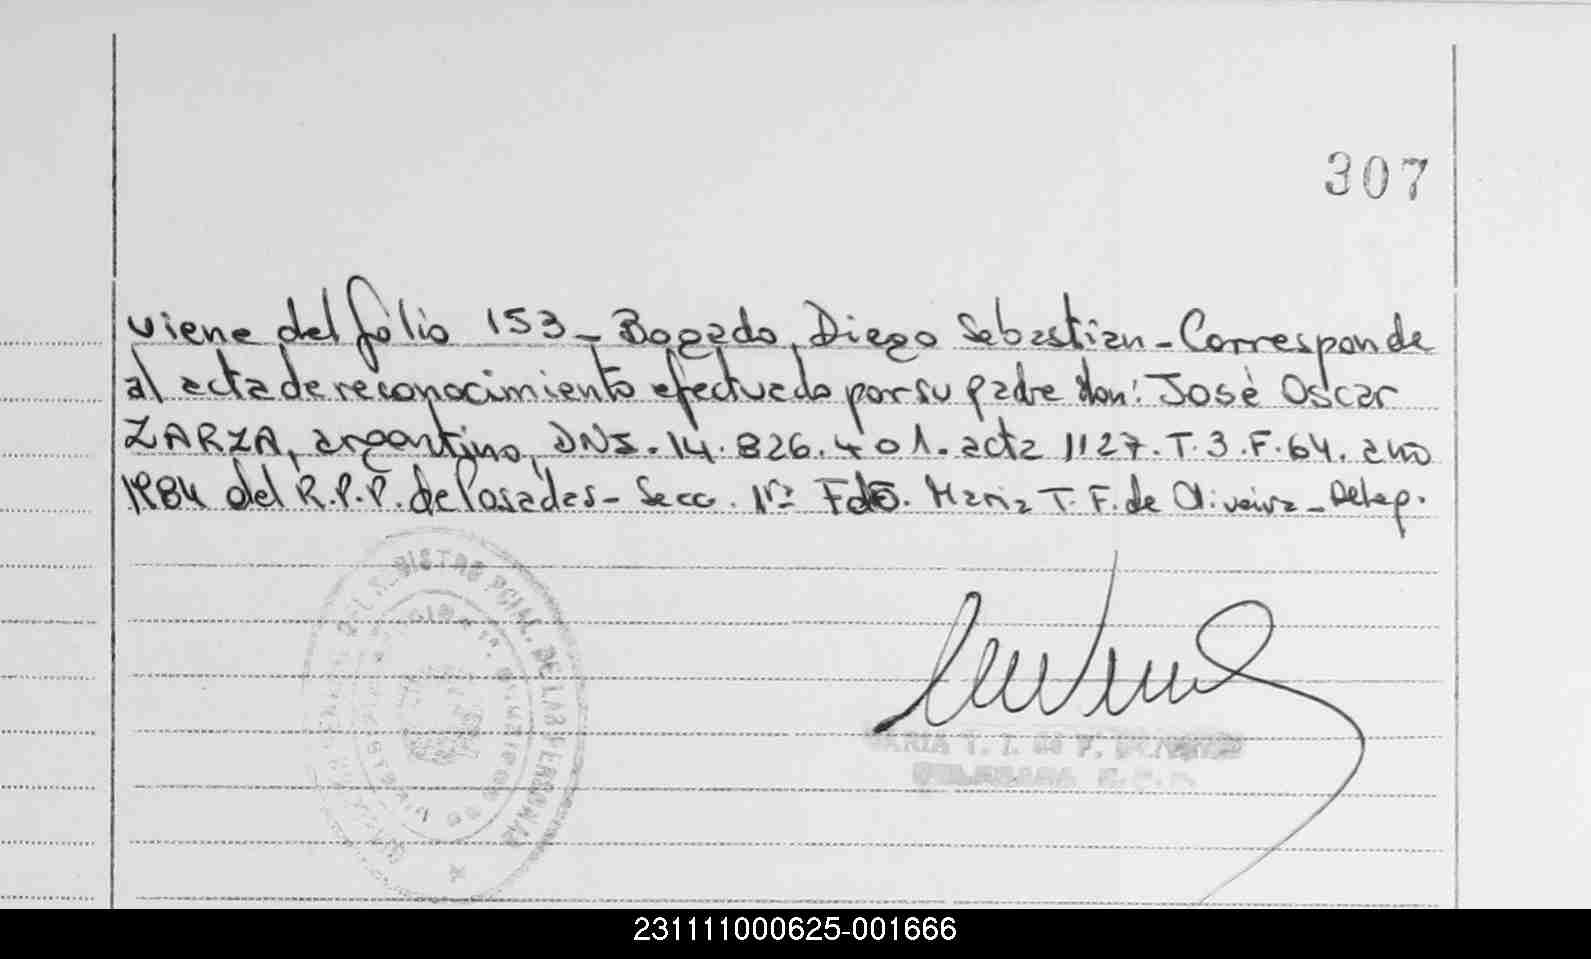 307
viene del folio 153 - Bogado, Diego Sebastian - Corresponde
al acta de reconocimiento efectuado por su padre don: José Oscar
ZARZA, argentino, DNI. 14.826.401. acta 1127. T. 3. F. 64. año
1984 del R.P.P. de Posadas - Secc. 1ra Fdo. Maria T. F. de Oliveira - Deleg.
MARIA T. DE F.
DELEGADA
PCIAL. DE LAS PERSONAS
231111000625-001666